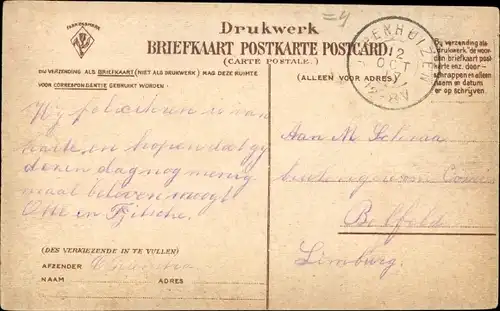 =4
FABRIEKSMERK
Drukwerk
BRIEFKAART POSTKARTE POSTCARD
(CARTE POSTALE.)
BIJ VERZENDING ALS BRIEFKAART (NIET ALS DRUKWERK) MAG DEZE RUIMTE
VOOR CORRESPONDENTIE GEBRUIKT WORDEN.
(ALLEEN VOOR ADRES)
Bij verzending als
drukwerk, de woor-
den briefkaart post-
karte enz. door-
schrappen en alleen
naam en datum
er op schrijven.
12
OCT
Wij feliciteren u van
harte en hopen dat gij
dezen dag nog menig
maal beleven moogt
Otte en Fjitsche.
Aan M
Belfeld
Limburg.
(DES VERKIEZENDE IN TE VULLEN)
AFZENDER
NAAM ADRES